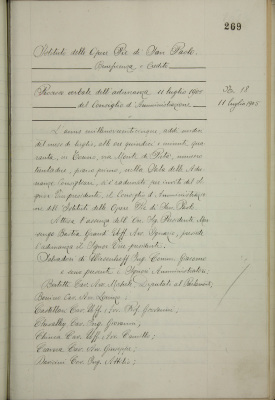 269
Istituto delle Opere Pie di San Paolo
Beneficenza e Credito
Processo verbale dell'adunanza 11 luglio 1905
del Consiglio d'Amministrazione
N. 18
11 luglio 1905
L'anno millenovecentocinque, addì undici
del mese di luglio, alle ore quindici e minuti qua
ranta, in Torino, via Monte di Pietà, numero
trentadue, piano primo, nella Sala delle Adu
nanze Consigliari, si è radunato per invito del Si
gnor Vice presidente, il Consiglio d'Amministrazio
ne dell'Istituto delle Opere Pie di San Paolo.
Attesa l'assenza dell'Ill. Sig. Presidente
Grand' Uff. Avv. Ignazio, presiede
l'adunanza il Signor Vice presidente:
Ing. Comm. Giacomo
e sono presenti i Signori Amministratori,
Bertetti Cav. Avv. Michele, Deputato al Parlamento;
Cav. Avv. Lorenzo;
Castellari Cav. Uff. Prof. Giovanni;
Chevalley Cav. Ing. Giovanni;
Cav. Uff. Avv. Camillo;
Cav. Avv. Giuseppe;
Cav. Ing. Attilio;